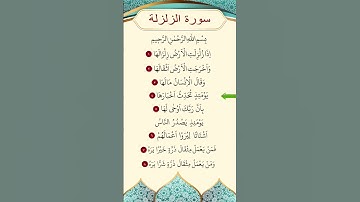 سورة الزلزلة
بِسْمِ اللَّهِ الرَّحْمَٰنِ الرَّحِيمِ
إِذَا زُلْزِلَتِ الْأَرْضُ زِلْزَالَهَا ١
وَأَخْرَجَتِ الْأَرْضُ أَثْقَالَهَا ٢
وَقَالَ الْإِنْسَانُ مَا لَهَا ٣
يَوْمَئِذٍ تُحَدِّثُ أَخْبَارَهَا ٤
بِأَنَّ رَبَّكَ أَوْحَىٰ لَهَا ٥
يَوْمَئِذٍ يَصْدُرُ النَّاسُ
أَشْتَاتًا لِيُرَوْا أَعْمَالَهُمْ ٦
فَمَنْ يَعْمَلْ مِثْقَالَ ذَرَّةٍ خَيْرًا يَرَهُ ٧
وَمَنْ يَعْمَلْ مِثْقَالَ ذَرَّةٍ شَرًّا يَرَهُ ٨